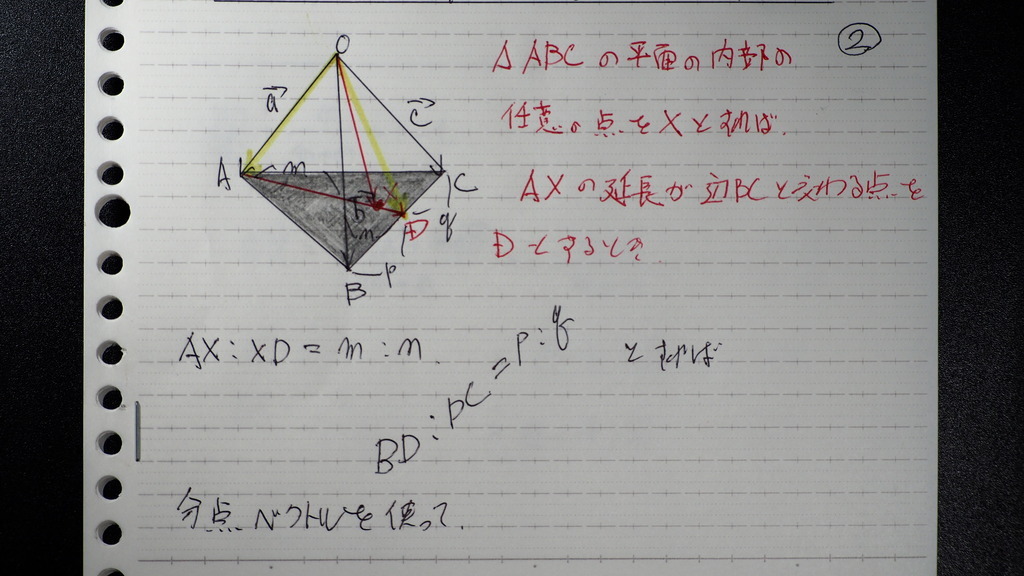 ②
O
a
c
A
m
C
b
n
D
q
p
B
△ABCの平面の内部の
任意の点をXとすれば.
AXの延長が辺BCと交わる点を
Dとするとき
AX:XD=m:n.
BD:DC=p:q
とすれば
分点ベクトルを使って.